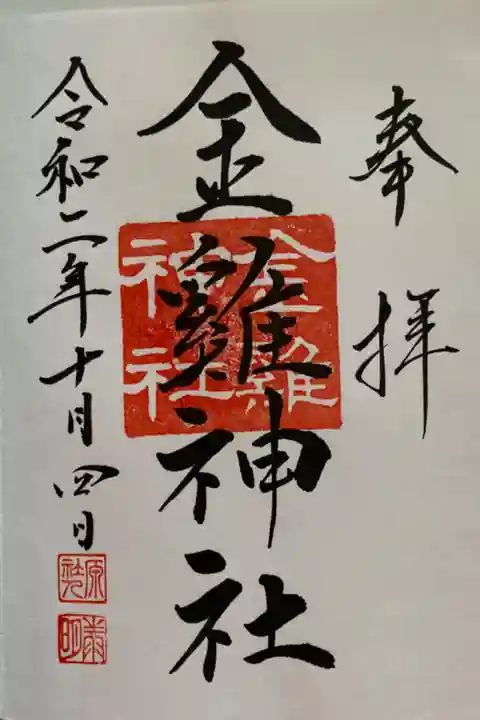 奉拝
金雞神社
金雞神社
令和二年十月四日